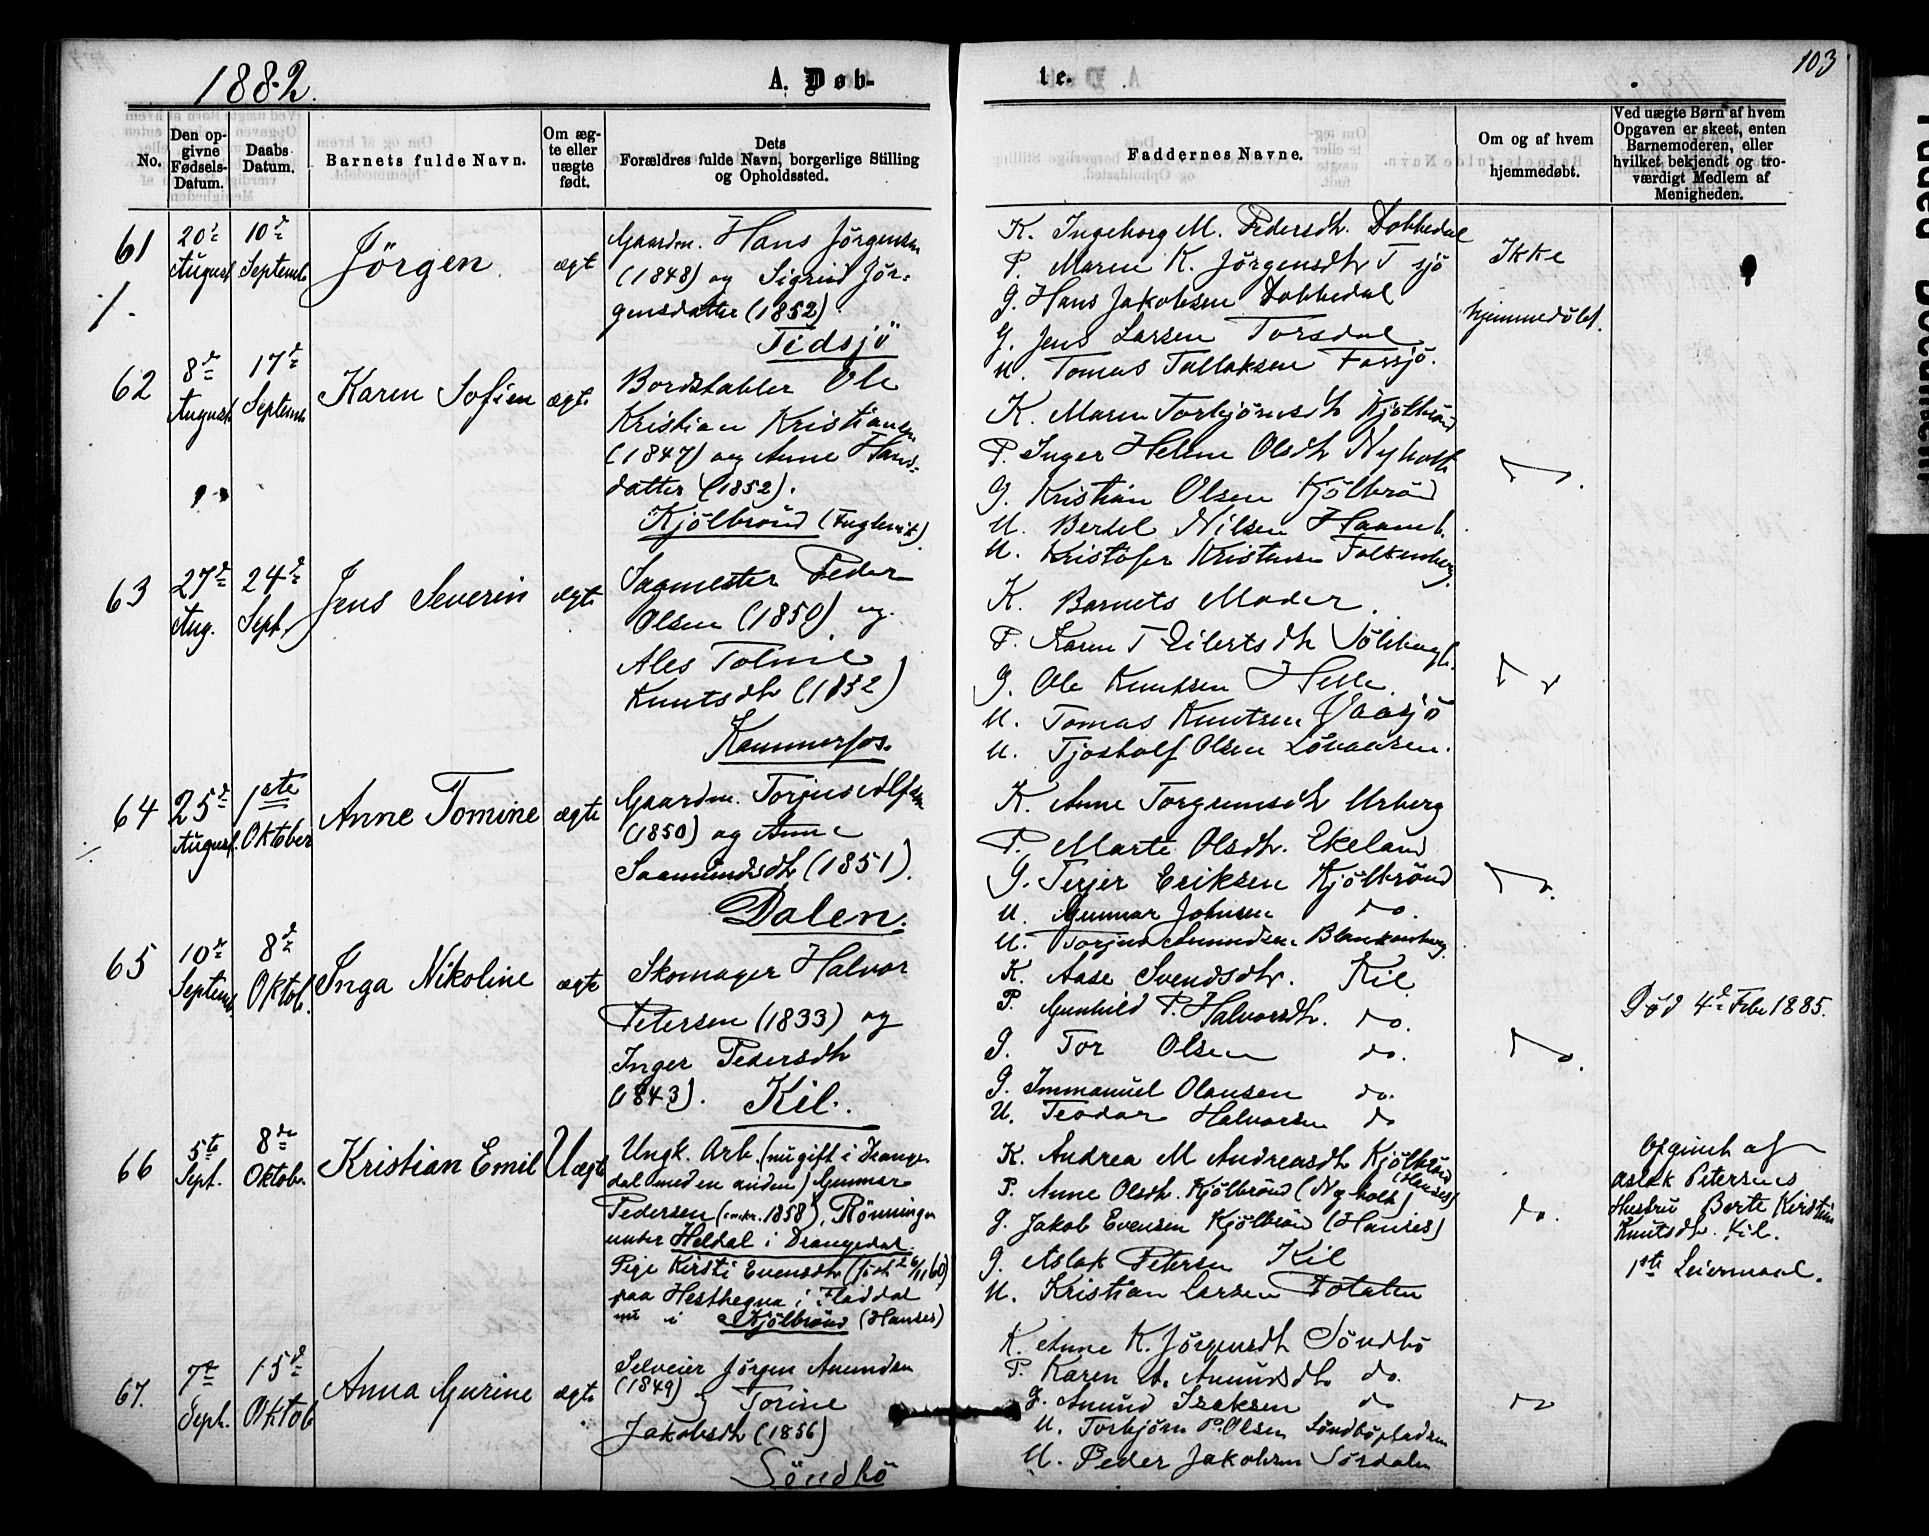 1882.
A. Døb-
te.
103
No.
Den op-
givne
Fødsels-
Datum.
Daabs
Datum.
Barnets fulde Navn.
Om æg-
te eller
uægte
født.
Dets
Forældres fulde Navn, borgerlige Stilling
og Opholdssted.
Faddernes Navne.
Om og af hvem
hjemmedøbt.
Ved uægte Børn af hvem
Opgaven er skeet, enten
Barnemoderen, eller
hvilket bekjendt og tro-
værdigt Medlem af
Menigheden.
61
20de
August
10de
Septemb
Jörgen
ægt
Gaardm. Hans Jørgensen
(1848) og Sigrid Jör-
gensdatter (1852)
Tidsjö
K. Ingeborg M. Pedersdtr. Dobbedal
P. Maren K. Jørgensdtr T sjö
G. Hans Jakobsen Dobbedal
G. Jens Larsen Torsdal
U. Tomas Tallaksen Farsjö.
Ikke
hjemmedöbt.
62
8de
August
17de
Septemb
Karen Sofien
ægte
Bordstabler Ole
Kristian Kristiansen
(1847) og Anne Hans-
datter (1852).
Kjölbrönd (Fuglevik)
K. Maren Torbjörnsdtr Kjölbrönd
P. Inger Helene Olsdtr Nyholt
G. Kristian Olsen Kjölbrönd
U. Bertel Nilsen Haaneb.
U. Kristofer Kristensen Falkenberg
do.
63
27de
Aug.
24de
Sept.
Jens Severin
ægte
Sagmester Peder
Olsen (1850) og
Ales Toline
Knutsdtr (1852)
Kammerfos.
K. Barnets Moder.
P. Karen T Eilertsdtr
G. Ole Knutsen Helle.
U. Tomas Knutsen Vaasjö
U. Tjostolf Olsen
do
64
25de
August
1ste
Oktober
Anne Tomine
ægte
Gaardm. Torjus Alfsen
(1850) og Anne
Saamundsdtr (1851).
Dalen.
K. Anne Torgrimsdtr Urberg
P. Marte Olsdtr. Ekeland
G. Terjer Eriksen Kjölbrönd
U. Gunnar Johnsen do.
U. Torjus Amundsen Blankenberg
do.
65
10de
Septemb.
8de
Oktob.
Inga Nikoline
ægte
Skomager Halvor
Petersen (1833) og
Inger Pedersdtr
(1843). Kil.
K. Aase Svendsdtr. Kil
P. Gunhild P. Halvorsdtr. do.
G. Tor Olsen do.
G. Immanuel Olausen do.
U. Teodor Halvorsen do
do.
Död 4de Feb. 1885.
66
5te
Sept.
8de
Oktober.
Kristian Emil
Uægte
Ungk. Arb. (nu gift i Drange-
dal med en anden) Gunnar
Pedersen (omkr. 1858), Rönningen
under Heldal i Drangedal
Pige Kirsti Evensdtr (född 26/11 60)
paa Hesthegna i Fladdal
nu i Kjölbrönd (Hanses)
K. Andrea M Andreasdtr Kjölbrönd
(Hanses)
P. Anne Olsdtr. Kjölbrönd (Nyholt)
G. Jakob Evensen Kjölbrönd (Hanses)
G. Aslak Petersen Kil
U. Kristian Larsen Potaten
do.
Opgivet af
Aslak Petersens
Hustru Berte Kirstine
Knutsdtr. Kil.
1ste Leiermaal.
67.
7de
Sept.
15de
Oktob
Anna Gurine
ægte
Selveier Jörgen Amundsen
(1849) og Torine
Jakobsdtr (1856)
Söndbö
K. Anne K. Jörgensdtr Söndbö
P. Karen A. Amundsdtr do.
G. Amund Isaksen do
U. Torbjörn P. Olsen
U. Peder Jakobsen Sördalen
do